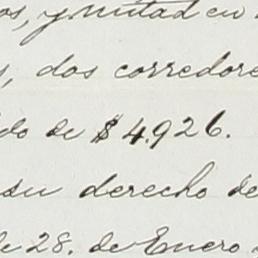 os, y mitad en
s, dos corredore
do de $4,926.
su derecho de
de 28. de Enero